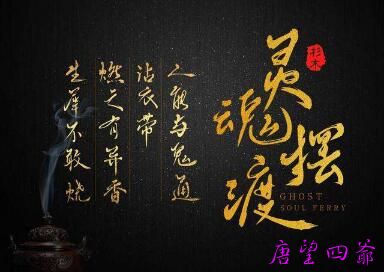 生犀不敢烧
燃之有异香
沾衣带
人能与鬼通
灵魂摆渡
GHOST
SOUL FERRY
唐望四爺